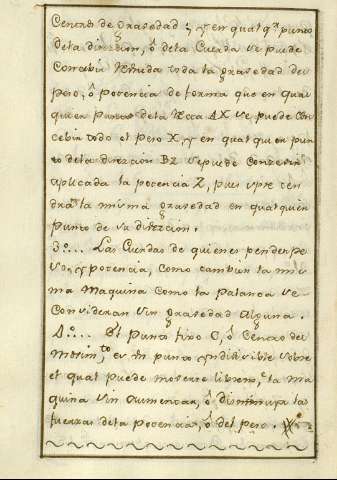 Centro de gravedad; y en qualqª punto
de la direzion, ô de la Cuerda se puede
Concebir Unida toda la gravedad del
peso, ô potencia de forma que en qual
quier Punto de la Recta AX se puede Con
cebir todo el peso X, y en qualquier pun
to de la direzion BZ se puede Conserbir
aplicada la potencia Z, pues spre ten
dra la misma gravedad en qualquier
Punto de su direzion.
3º... Las Cuerdas de quienes pende pe
so, y potencia, como tambien la mis
ma Maquina Como la Palanca se
Consideran Sin gravedad Alguna.
4º... El Punto fixo C, ô Centro del
Movimto, es Un punto Yndivisible sobre
el qual puede moverse libremte la ma
quina sin aumentar, ô Disminuir las
fuerzas de la Potencia, ô del peso.